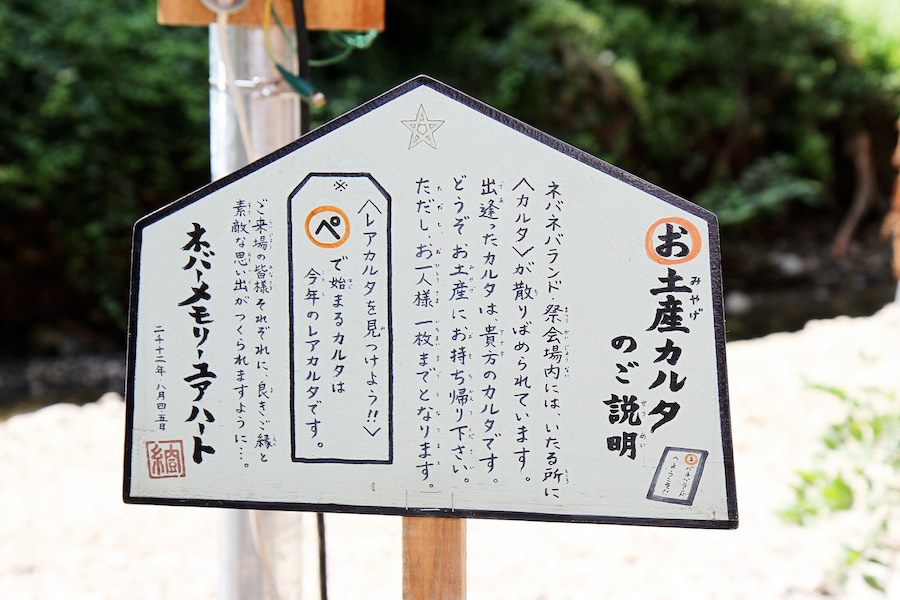 お土産カルタ
のご説明
ネバネバランド・祭会場内には、いたる所に
〈カルタ〉が散りばめられています。
出逢ったカルタは、貴方のカルタです。
どうぞ お土産に お持ち帰り下さい。
ただし、お一人様 一枚までとなります。
※
〈レアカルタを見つけよう!!〉
ペで始まるカルタは
今年のレアカルタです。
ご来場の皆様それぞれに、良きご縁と
素敵な思い出がつくられますように…。
ネバーメモリーユアハート
二千十二年 八月四五日